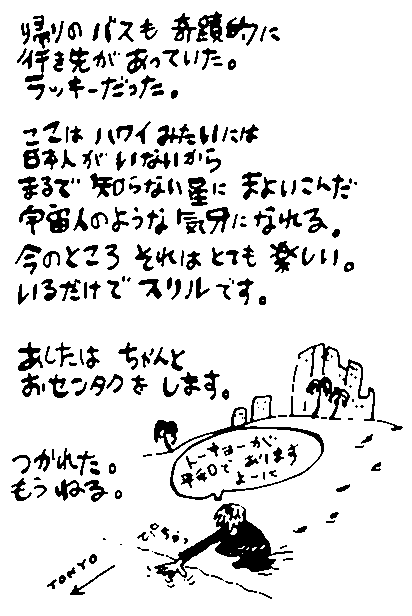 帰りの バスも 奇蹟的に
行き先が あっていた。
ラッキーだった。
ここは ハワイみたいには
日本人が いないから
まるで 知らない星に まよいこんだ
宇宙人のような 気分になれる。
今のところ それは とても 楽しい。
いるだけで スリルです。
あしたは ちゃんと
おセンタクを します。
つかれた。
もう ねる。
トーキョーが
平和で あります
よーに
ぴちゃっ
TOKYO